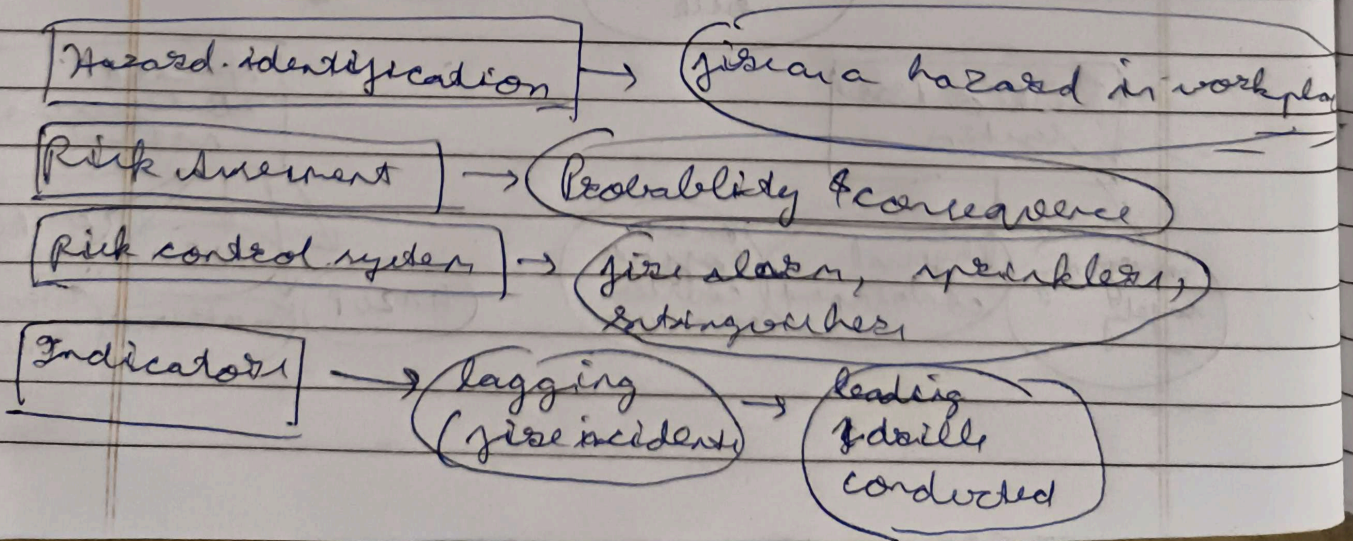 Hazard identification → fire as a hazard in workpla
Risk Assessment → Probablity & consequence
Risk control system → fire alarm, sprinklers,
extinguishers
Indicators → lagging → leading
(fire incidents drills
conducted